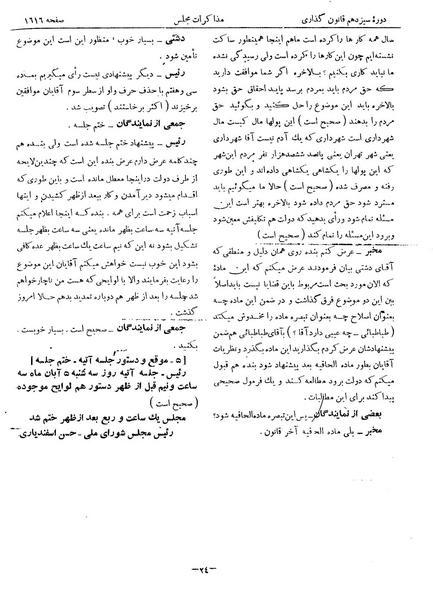 دورهٔ سیزدهم قانون گذاری
مذاکرات مجلس
صفحه ۱۶۱۶
سال همه کار ها را کرده است ماهم اینجا همینطور ساکت
نشسته‌ایم چون این کارها را کرده است ولی رسیدگی نشده
ما نباید کاری بکنیم؟ بالاخره اگر شما موافقت دارید
که حق مردم باید بمردم برسد باید احقاق حق بشود
بالاخره باید این موضوع را حل کنید و بگوئید حق
مردم را بدهند (صحیح است) این پولها مال کیست مال
شهرداری است شهرداری که یك آدم نیست آقا شهرداری
یعنی شهر تهران یعنی پانصد ششصدهزار نفر مردم این شهر
که این پولها را یکشاهی یکشاهی داده‌اند و این طوری
رفته و مصرف شده (صحیح است) حالا ما میگوئیم باید
مسترد شود حق مردم داده شود بالاخره بهتر است این
مسئله تمام شود ورأی بدهید که دولت هم تکلیفش معین شود
وبرود این مسئله را تمام کند (صحیح است)
مخبر ـ عرض کنم بنده روی همان دلیل و منطقی که
آقای دشتی بیان فرمودند عرض میکنم که این مادهٔ
که الان مورد بحث است مربوط باین قضایا نیست باید اصلاً
بین این دو موضوع فرق گذاشت و در ضمن این ماده چه
بعنوان اصلاح چه بعنوان تبصره ماده الحاقیه شود (
طباطبائی ـ چه عیبی دارد آقا؟) بآقای طباطبائی هم ضمن
پیشنهادشان عرض کردم بگذارید این ماده بگذرد و نظریات
آقایان بطور ماده الحاقیه بعد پیشنهاد شود بنده هم قبول
میکنم که دولت برود مطالعه کند و یك فرمول صحیحی
پیدا کند برای این مطالبات.
بعضی از نمایندگان ـ پس این تبصره ماده الحاقیه شود؟
مخبر ـ بلی ماده الحاقیه آخر قانون.
دشتی ـ بسیار خوب، منظور این است این موضوع
تأمین شود.
رئیس ـ دیگر پیشنهادی نیست رأی میگیریم بماده
سی وهفتم با حذف حرف واو از سطر سوم آقایان موافقین
برخیزند (اکثر برخاستند) تصویب شد.
جمعی از نمایندگان ـ ختم جلسه.
رئیس ـ پیشنهاد ختم جلسه شده است ولی بنده هم
چند کلمه عرض دارم عرض بنده این است که چندین لایحه
از طرف دولت دراینجا معطل مانده است و باین طوری که
اقدام میشود دیر آمدن و کار بیعد ازظهر کشیدن و اینها
اسباب زحمت است برای همه. بنده که اینجا اعلام میکنم
جلسه آتیه سه ساعت بظهر مانده یعنی سه ساعت بظهر جلسه
تشکیل بشود نه این که نیم ساعت یك ساعت بظهر عده کافی
بشود این خوب نیست خواهش میکنم آقایان این موضوع
را رعایت بفرمایند والا با لوایحی که هست من ناچار خواهم
شد جلسه را بعد از ظهر هم دوباره تمدید بدهم حالا امروز
گذشت.
جمعی از نمایندگان ـ صحیح است. بسیار خوبست.
بکنید.
[۵ ـ موقع و دستور جلسه آتیه ـ ختم جلسه]
رئیس ـ جلسه آتیه روز سه شنبه ۵ آبان ماه سه
ساعت ونیم قبل از ظهر دستور هم لوایح موجوده
(صحیح است)
مجلس یك ساعت و ربع بعد ازظهر ختم شد
رئیس مجلس شورای ملی ـ حسن اسفندیاری
ـ۲۴ـ